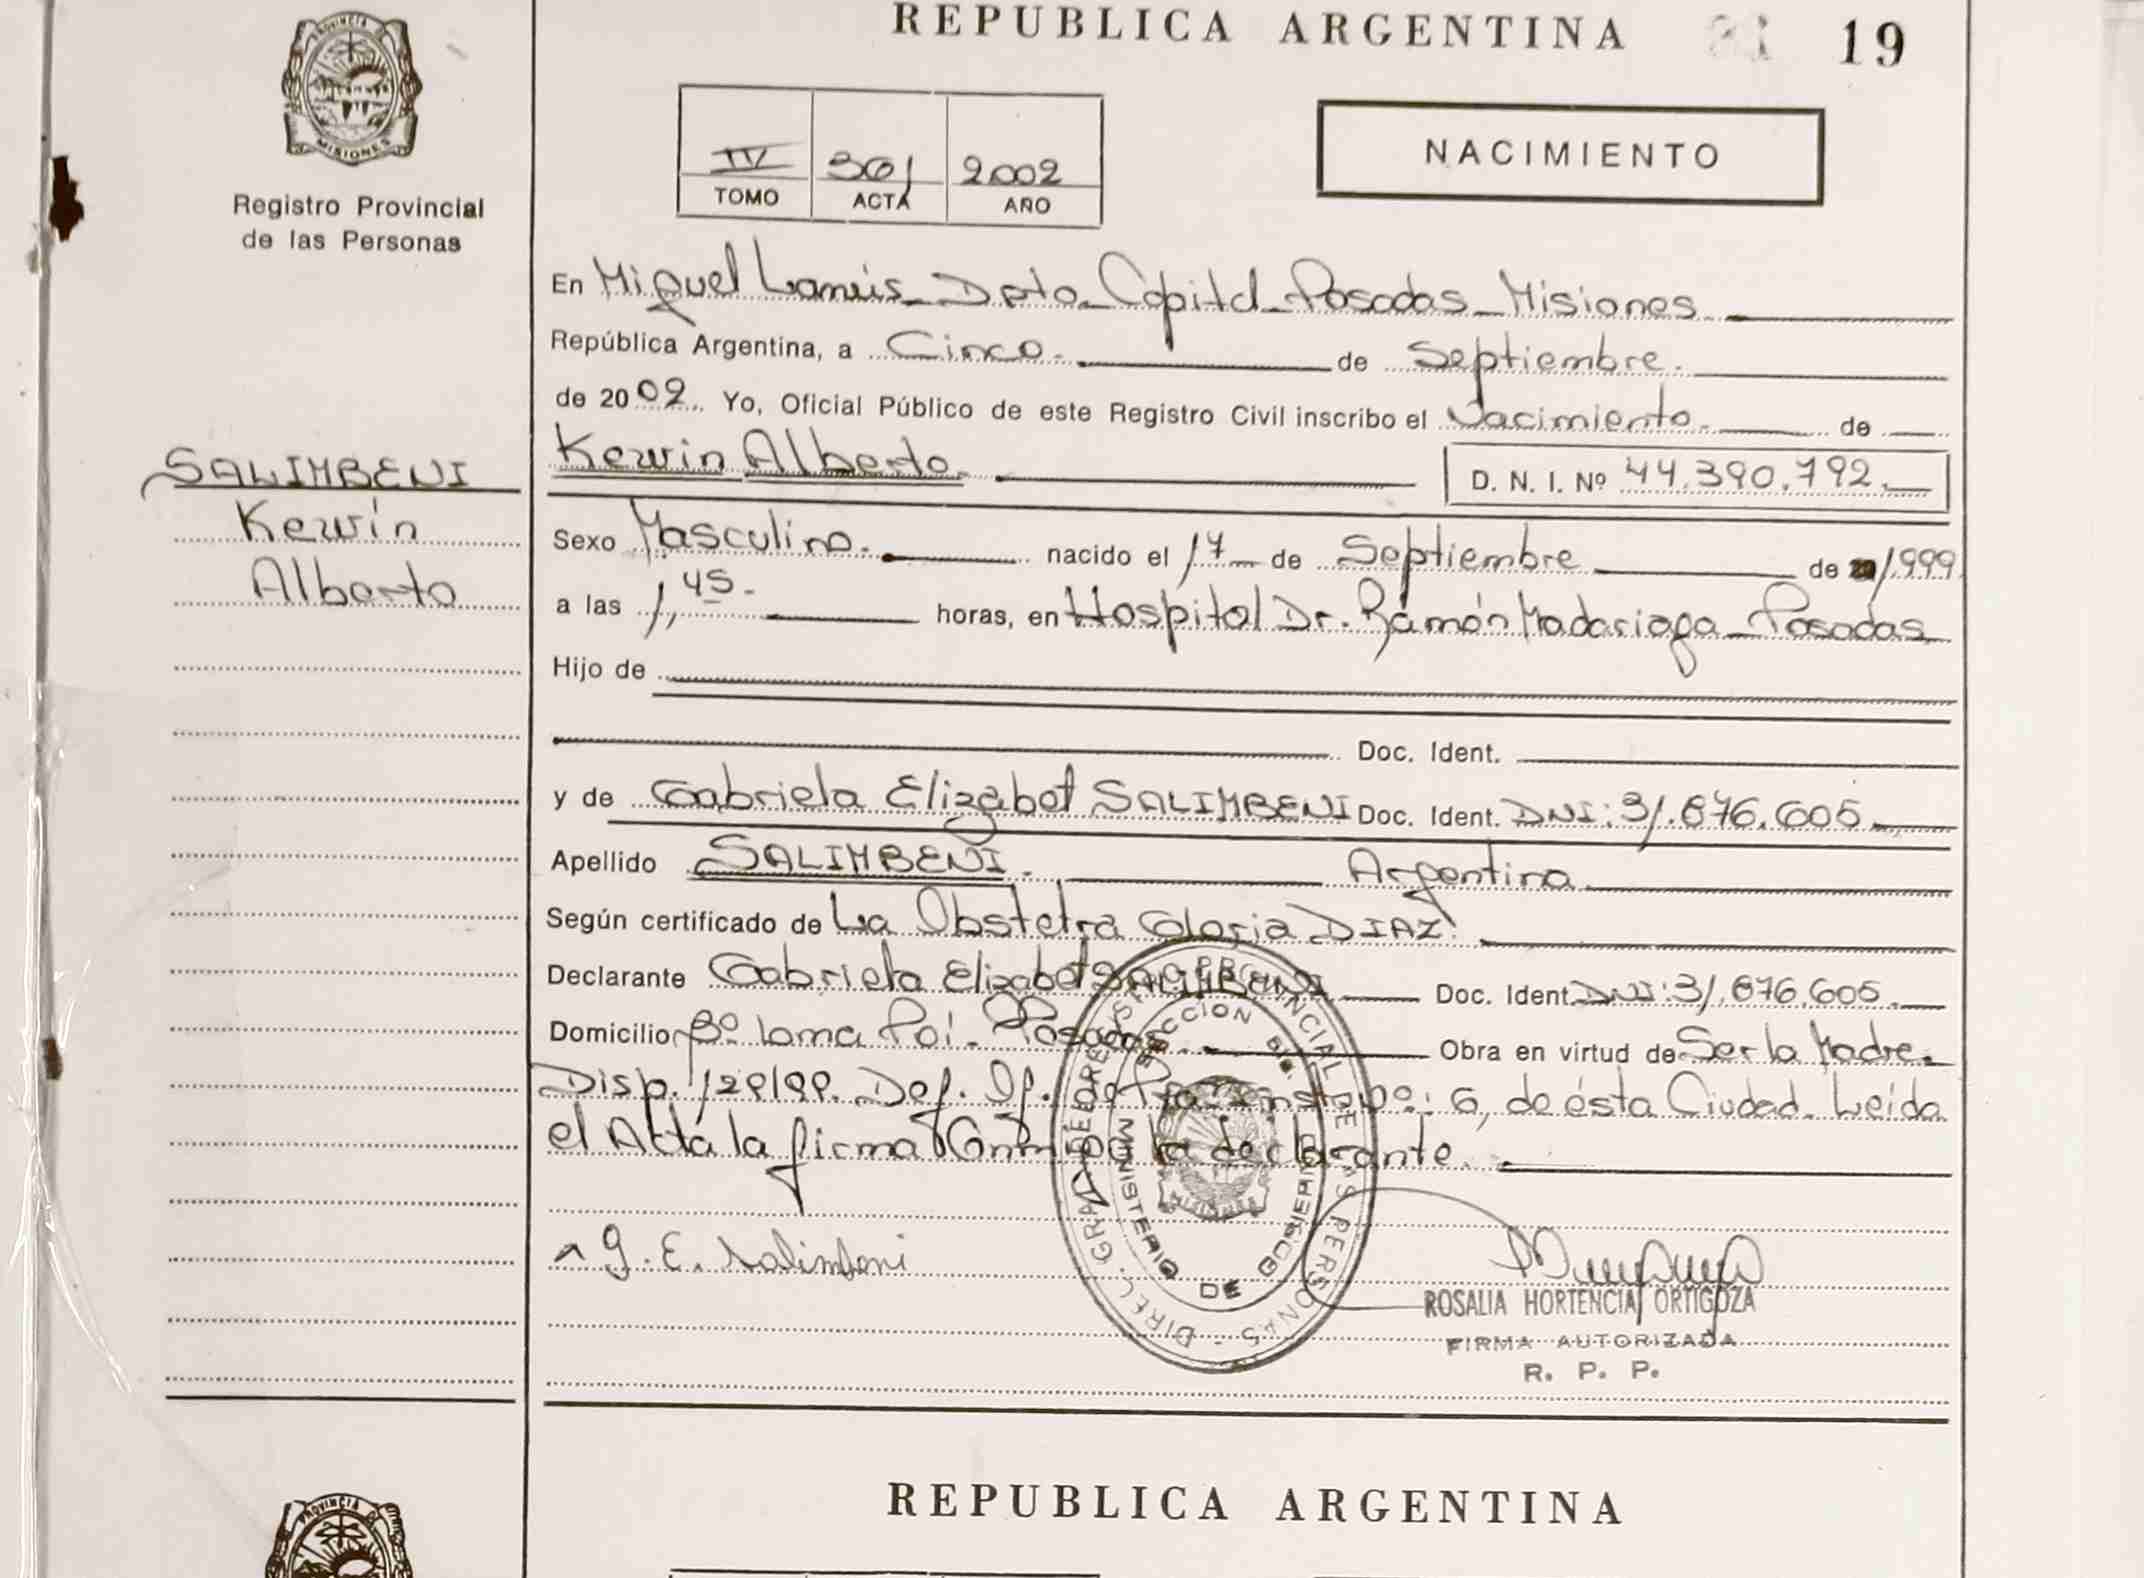 REPUBLICA ARGENTINA 19
PROVINCIA DE
MISIONES
Registro Provincial
de las Personas
IV 301 2002
TOMO ACTA AÑO
NACIMIENTO
En Miguel Lanús_Dpto_Capital_Posadas_Misiones
República Argentina, a Cinco de Septiembre.
de 2002. Yo, Oficial Público de este Registro Civil inscribo el Nacimiento de
SALIMBENI
Kewin
Alberto
Kewin Alberto. D. N. I. Nº 44.390.792.
Sexo Masculino. nacido el 17 de Septiembre de 1999
a las 1,45. horas, en Hospital Dr. Ramón Madariaga_Posadas
Hijo de
Doc. Ident.
y de Gabriela Elizabet SALIMBENI Doc. Ident. DNI: 31.676.605.
Apellido SALIMBENI. Argentina
Según certificado de La Obstetra Gloria DIAZ.
Declarante Gabriela Elizabet SALIMBENI Doc. Ident. DNI: 31.676.605.
Domicilio Bº Loma Poi. Posadas. Obra en virtud de Ser la Madre.
Disp. 129/99. Def. Of. de Inst. Nº: 6, de ésta Ciudad. Leída
el Acta la firma Conmigo la declarante.
G. E. Salimbeni
DIREC. GRAL. DEL REGISTRO PROVINCIAL DE LAS PERSONAS
MINISTERIO DE GOBIERNO
ROSALIA HORTENCIA ORTIGOZA
FIRMA AUTORIZADA
R. P. P.
REPUBLICA ARGENTINA
PROVINCIA DE